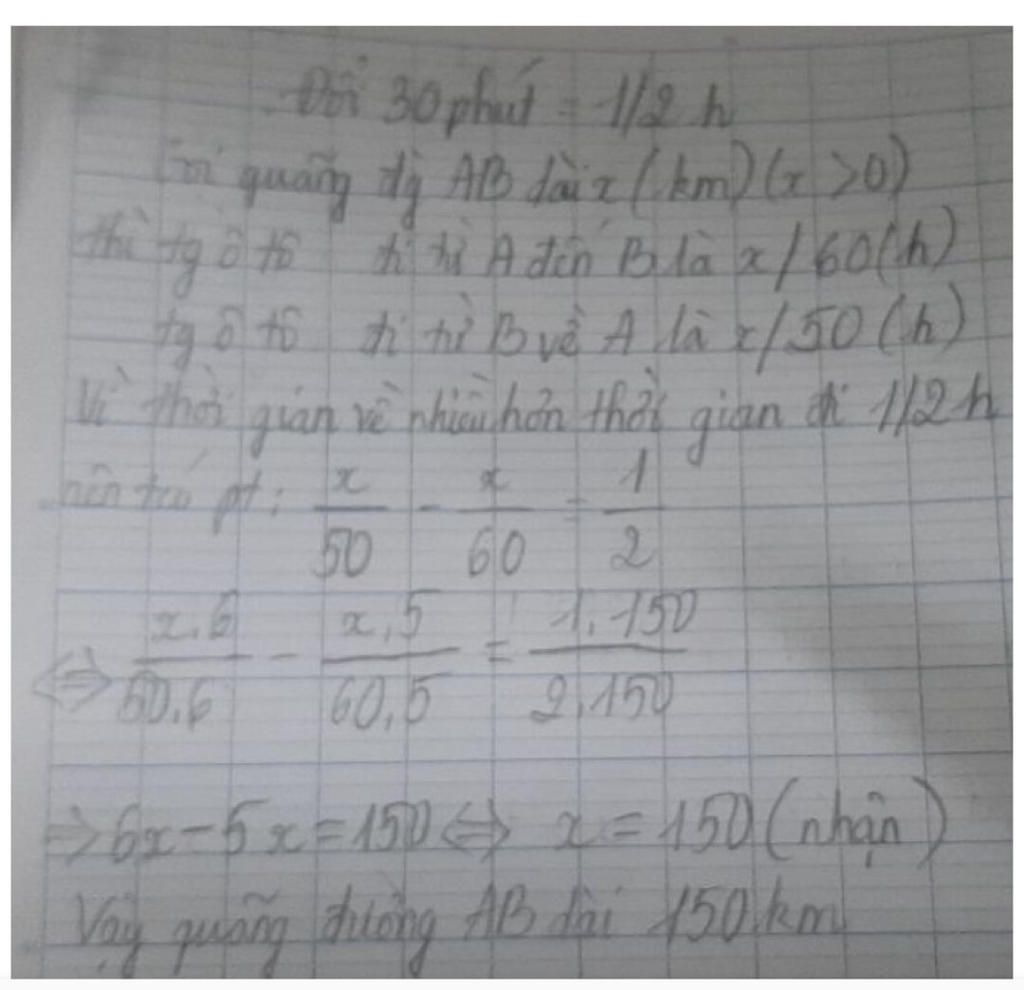 Đổi 30 phút = 1/2 h
Gọi quãng đg AB dài x (km) (x > 0)
thì tg ô tô đi từ A đến B là x/60 (h)
tg ô tô đi từ B về A là x/50 (h)
Vì thời gian về nhiều hơn thời gian đi 1/2 h
nên ta có pt: x/50 - x/60 = 1/2
⇔ x.6/50.6 - x.5/60.5 = 1.150/2.150
⇒ 6x - 5x = 150 ⇔ x = 150 (nhận)
Vậy quãng đường AB dài 150 km